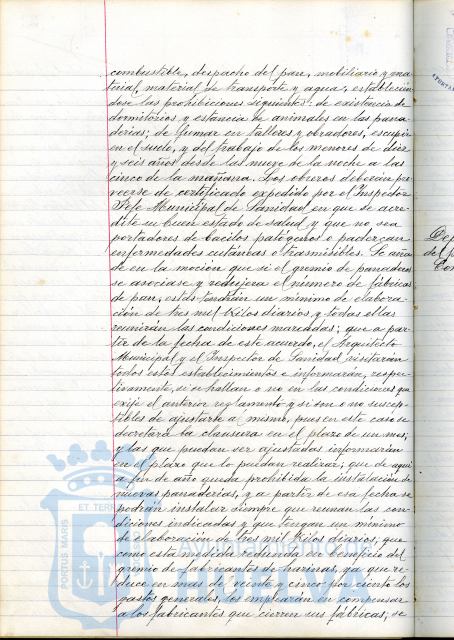 combustible, despacho del pan, mobiliario y ma
terial, material de transporte y agua, establecien
dose las prohibiciones siguientes: de existencia de
dormitorios y estancia de animales en las pana
derias; de fumar en talleres y obradores, escupir
en el suelo, y del trabajo de los menores de diez
y seis años desde las nueve de la noche a las
cinco de la mañana. Los obreros deberán pro
veerse de certificado expedido por el Inspector
Jefe Municipal de Sanidad en que se acre-
dite su buen estado de salud y que no sea
portadores de bacilos patógenos o padezcan
enfermedades cutáneas o trasmisibles. Se aña
de en la moción que si el gremio de panaderos
se asociase y redujera el número de fábricas
de pan, estas tendrán un mínimo de elabora-
ción de tres mil kilos diarios, y todas ellas
reunirán las condiciones marcadas; que a par-
tir de la fecha de este acuerdo, el Arquitecto
Municipal y el Inspector de Sanidad visitarán
todos estos establecimientos e informarán, respec-
tivamente, si se hallan o no en las condiciones que
exije el anterior reglamento y si son o no suscep-
tibles de ajustarse al mismo, pues en este caso se
decretará la clausura en el plazo de un mes,
y las que puedan ser ajustadas informarán
en el plazo que lo puedan realizar; que de aqui
a fin de año queda prohibida la instalación de
nuevas panaderias, y a partir de esa fecha se
podrán instalar siempre que reunan las con-
diciones indicadas y que tengan un mínimo
de elaboración de tres mil kilos diarios; que
como esta medida redunda en beneficio del
gremio de fabricantes de harinas, ya que re-
duce en mas de veinte y cinco por ciento los
gastos generales, los emplearán en compensar
a los fabricantes que cierren sus fábricas; se
Dep
de
Con
PORTUS MARIS
ET TERR